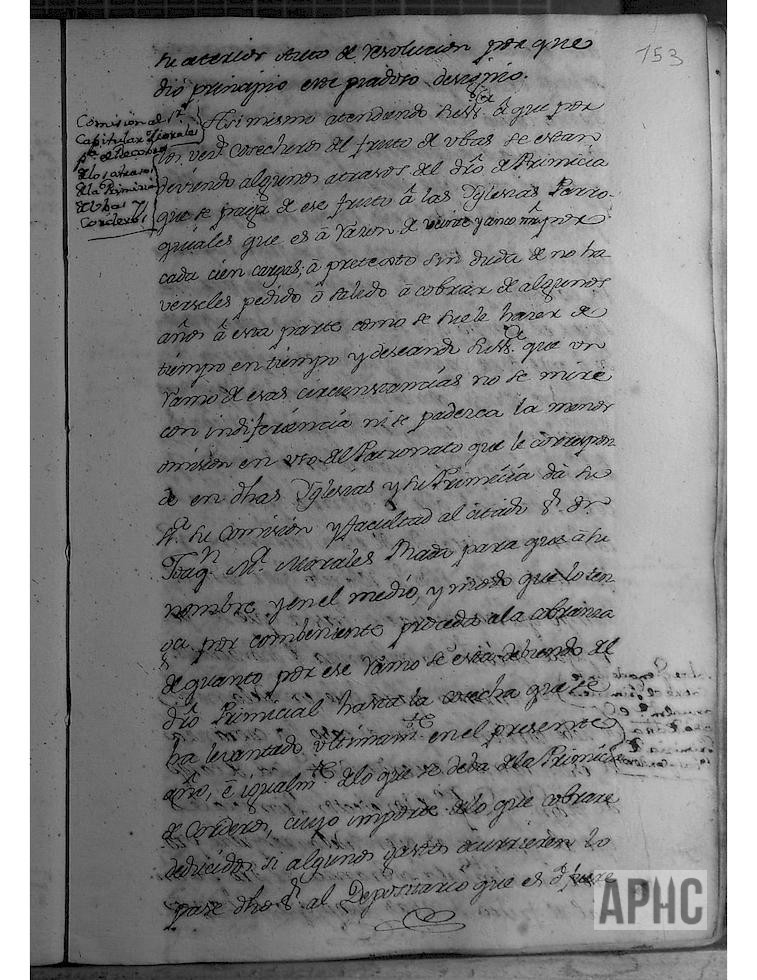 153
su acterior Auto de resolucion por que
dió principio este piadoso designio.
Comision al Sr
Capitular Morales
pa. el Recobro
de los atrasos
de la Primicia
de Ubas y
Corderos
Asi mismo atendiendo Su Sa. á que por
los vecs. cosecheros del fruto de ubas se estan
deviendo algunos atrasos del dro de Primicia
que se paga de ese fruto á las Yglesias Parro-
quiales que es á razon de veinte y cinco mrs. por
cada cien cargas; á pretexto sin duda de no ha-
verseles pedido ô salido a cobrar de algunos
años â esta parte como se suele hazer de
tiempo en tiempo y deseando Su Sa. que un
Ramo de esas circunstancias no se mire
con indiferencia ni se padezca la menor
omision en uso del Patronato que le correspon-
de en dhas Yglesias y su Primicia dá su
Sa. su Comision y facultad al citado Sr. Dn.
Joaqn. Ma. Morales Prada para que á su
nombre y en el medio, y modo que lo ten-
ga por combeniente proceda a la cobranza
de quanto por ese Ramo se está debiendo del
dro Primicial hasta la cosecha que se
ha levantado ultimamte. en el presente
año, é igualmte. de lo que se deva de la Primicia
de Corderos, cuyo importe de lo que cobrare
deducidos si algunos gastos ocurrieren lo
pase dho Sr. al Depositario que es ô fuere
APHC